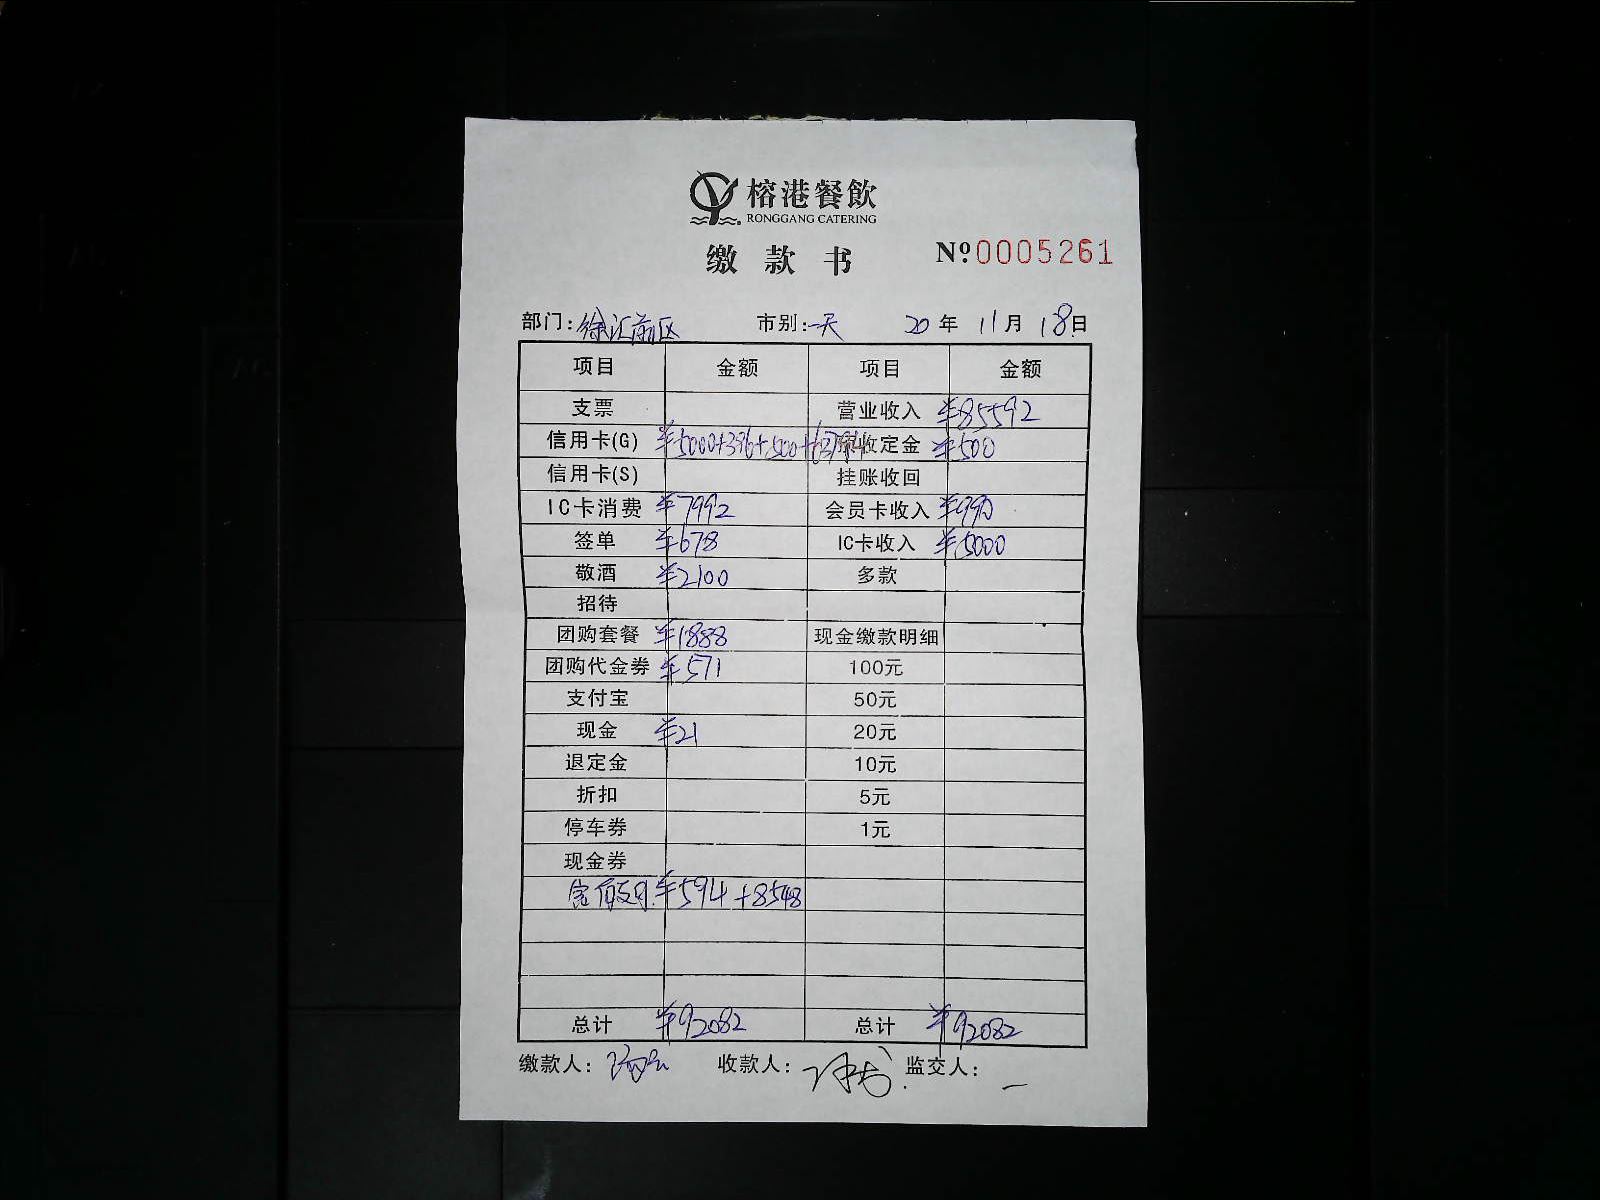 榕港餐飲
RONGGANG CATERING
缴款书 Nº 0005261
部门: 徐汇前区 市别: 一天 20年 11月 18日
项目 金额 项目 金额
支票 营业收入 ¥85592
信用卡(G) ¥5000+396+500+63794 预收定金 ¥500
信用卡(S) 挂账收回
IC卡消费 ¥7992 会员卡收入 ¥990
签单 ¥678 IC卡收入 ¥5000
敬酒 ¥2100 多款
招待
团购套餐 ¥1888 现金缴款明细
团购代金券 ¥571 100元
支付宝 50元
现金 ¥21 20元
退定金 10元
折扣 5元
停车券 1元
现金券
¥594+8548
总计 ¥92082 总计 ¥92082
缴款人: 收款人: 监交人: 一